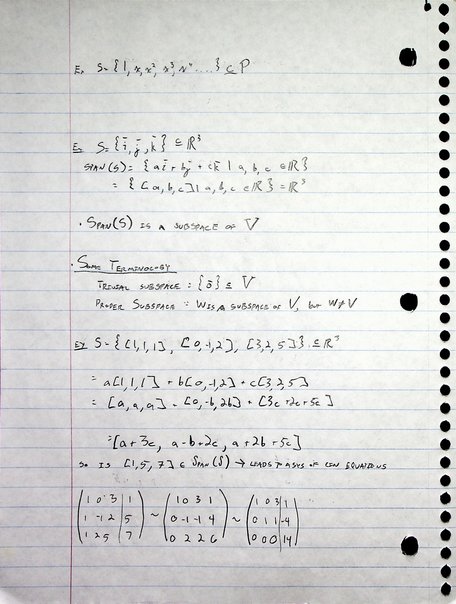 Ex S = { 1, x, x², x³, x⁴ .... } ⊆ P
Ex S = { i, j, k } ⊆ ℝ³
SPAN(S) = { ai + bj + ck | a, b, c ∈ ℝ }
= { [a, b, c] | a, b, c ∈ ℝ } = ℝ³
· SPAN(S) IS A SUBSPACE OF V
· SOME TERMINOLOGY
TRIVIAL SUBSPACE : {0} ⊆ V
PROPER SUBSPACE : W IS A SUBSPACE OF V, BUT W ≠ V
EX S = { [1,1,1], [0,-1,2], [3,2,5] } ⊆ ℝ³
= a[1,1,1] + b[0,-1,2] + c[3,2,5]
= [a, a, a] + [0,-b, 2b] + [3c + 2c + 5c]
= [a + 3c, a - b + 2c, a + 2b + 5c]
SO IS [1,5,7] ∈ SPAN(S) → LEADS TO OF LIN EQUATIONS
( 1 0 3 | 1 ) ~ ( 1 0 3 1 ) ~ ( 1 0 3 | 1 )
( 1 -1 2 | 5 ) ( 0 -1 -1 4 ) ( 0 1 1 | -4 )
( 1 2 5 | 7 ) ( 0 2 2 6 ) ( 0 0 0 | 14 )